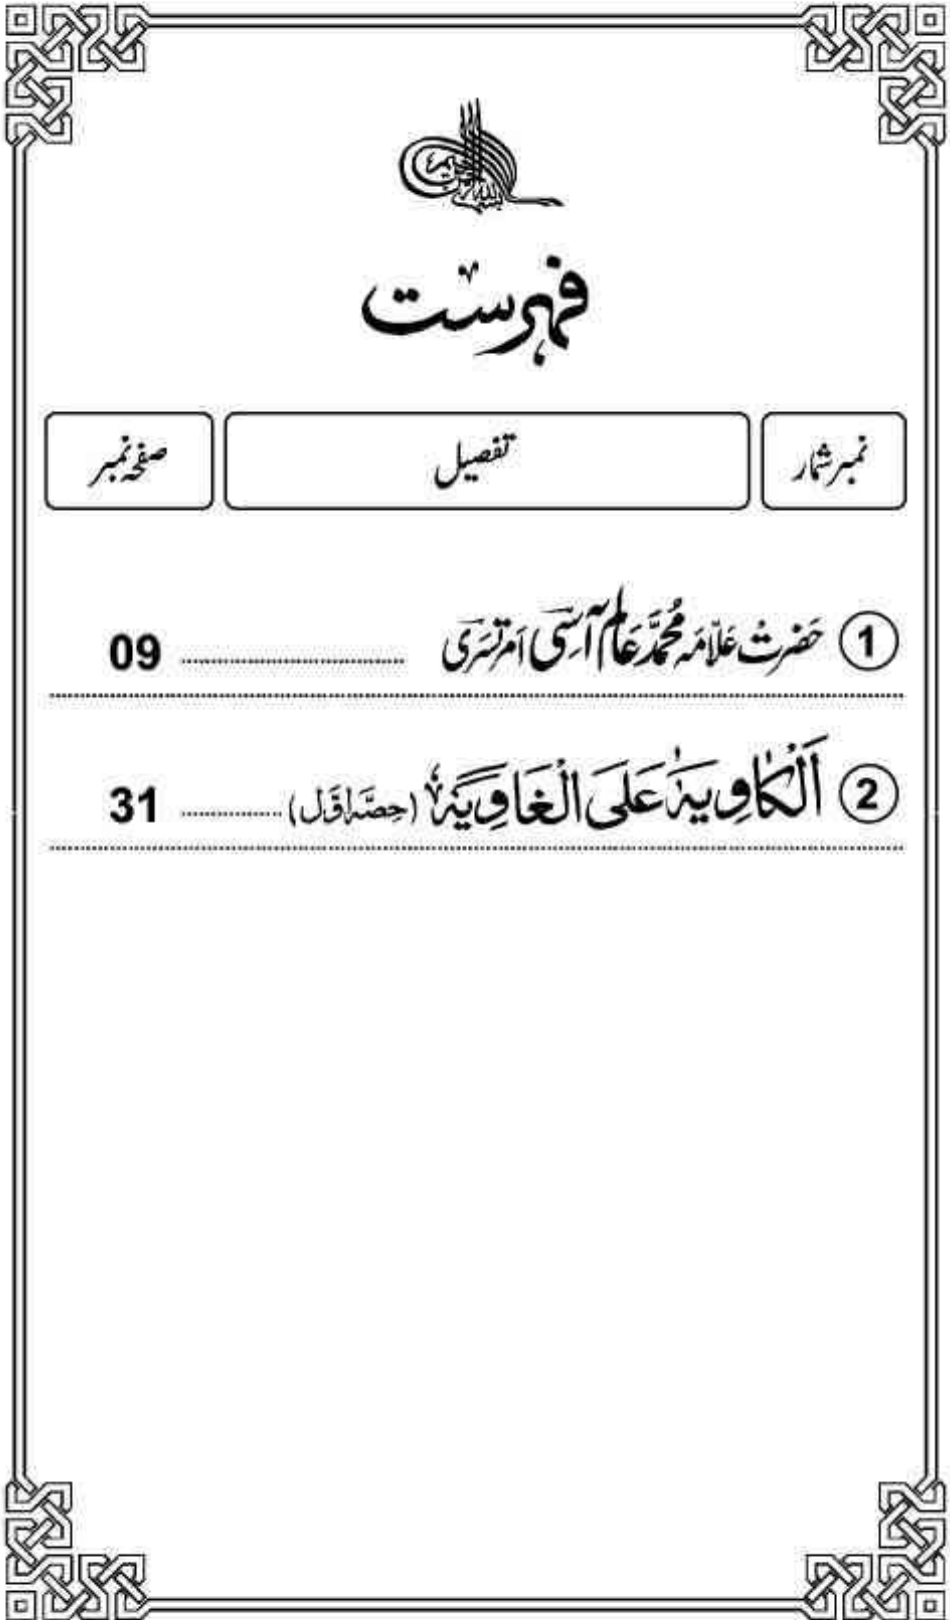 بسم الله الرحمن الرحيم
فہرست
نمبر شمار تفصیل صفحہ نمبر
1 حَضرتْ عَلّامَہ مُحَمَّد عَالِم آسِی اَمرتسَرَی .......... 09
2 اَلْکَاوِیَہْ عَلَی الْغَاوِیَہْ (حِصَّہ اَوَّل) .......... 31